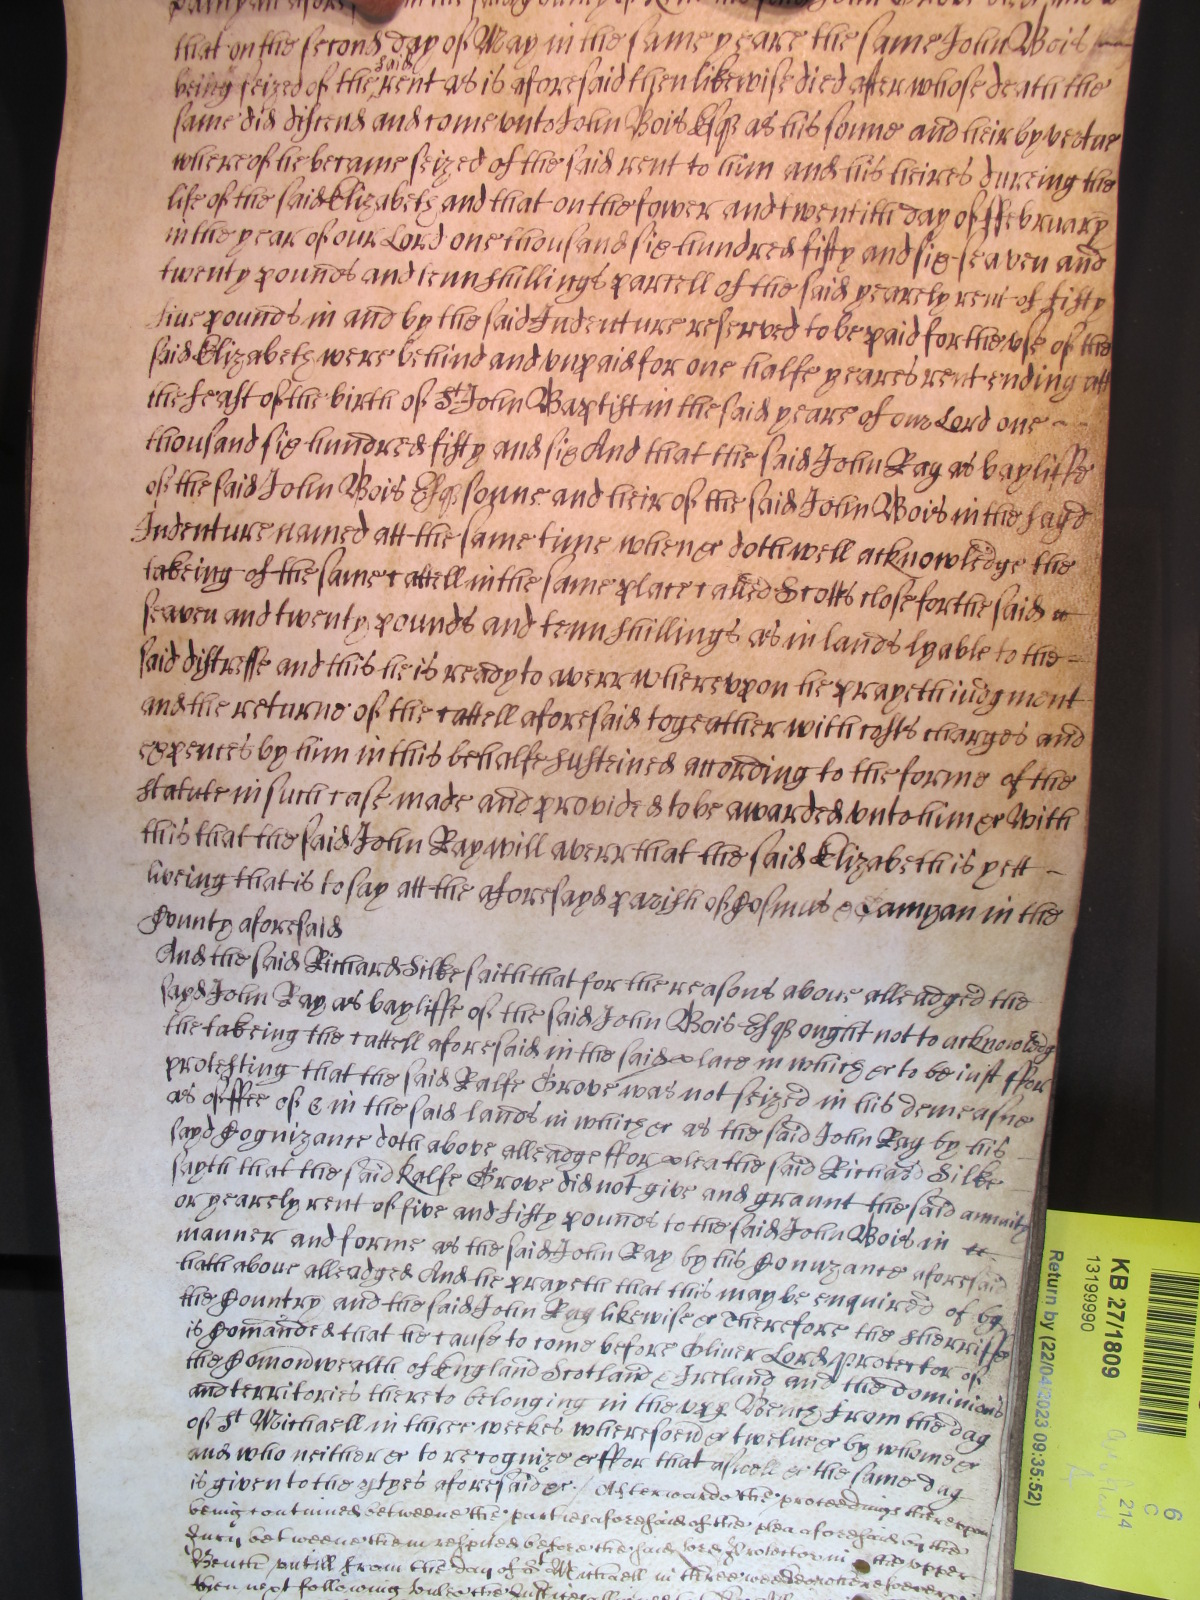 that on the second day of May in the same yeare the same John Bois
being seized of the said rent as is aforesaid then likewise died after whose death the
same did discend and come vnto John Bois Esqr as his sonne and heir by vertue
whereof he became seized of the said rent to him and his heires dureing the
life of the said Elizabeth and that on the fower and twentith day of ffebruary
in the year of our Lord one thousand six hundred fifty and six seaven and
twenty pounds and tenn shillings parcell of the said yearely rent of fifty
five pounds in and by the said Indenture reserved to be paid for the vse of the
said Elizabeth were behind and vnpaid for one halfe yeares rent ending att
the feast of the birth of St John Baptist in the said yeare of our Lord one
thousand six hundred fifty and six And that the said John Ray as bayliffe
of the said John Bois Esqr sonne and heir of the said John Bois in the sayd
Indenture named att the same time when &c doth well acknowledge the
takeing of the same cattell in the same place called Scotts close for the said
seaven and twenty pounds and tenn shillings as in lands lyable to the
said distresse and this he is ready to averr wherevpon he prayeth iudgment
and the returne of the cattell aforesaid togeather with costs charges and
expences by him in this behalfe susteined according to the forme of the
statute in such case made and provided to be awarded vnto him &c With
this that the said John Ray will averr that the said Elizabeth is yett
liveing that is to say att the aforesayd parish of Cosmus & Damyan in the
County aforesaid
And the said Richard Silke saith that for the reasons aboue alleadged the
sayd John Ray as bayliffe of the said John Bois Esqr ought not to acknowledg
the takeing the cattell aforesaid in the said place in which &c to be iust ffor
protesting that the said Ralfe Grove was not seized in his demeasne
as of ffee of & in the said lands in which &c as the said John Ray by his
sayd Cognizance doth above alleadge ffor plea the said Richard Silke
sayth that the said Ralfe Grove did not give and graunt the said annuity
or yearely rent of five and fifty pounds to the said John Bois in
manner and forme as the said John Ray by his Conuzance aforesaid
hath aboue alleadged And he prayeth that this may be enquired of by
the Country and the said John Ray likewise &c Therefore the sherriffe
is Comanded that he cause to come before Oliver Lord Protector of
the Comonwealth of England Scotland & Ireland and the dominions
and territories thereto belonging in the vpp Bench from the day
of St Michaell in three weekes wheresoever &c twelue &c by whome &c
and who neither &c to recognize &c ffor that aswell &c the same day
is given to the ptyes aforesaid &c Afterwards the proceedings therevpon
being continued betweene the parties aforesaid of the plea aforesaid by the
Jury betweene them respited before the said Lord Protector in the vpper
Bench vntill from the day of St Michaell in three weekes wheresoever
then next following vnles the Justices
KB 27/1809
13199990
Return by (22/04/2023 09:35:52)
6
C
214